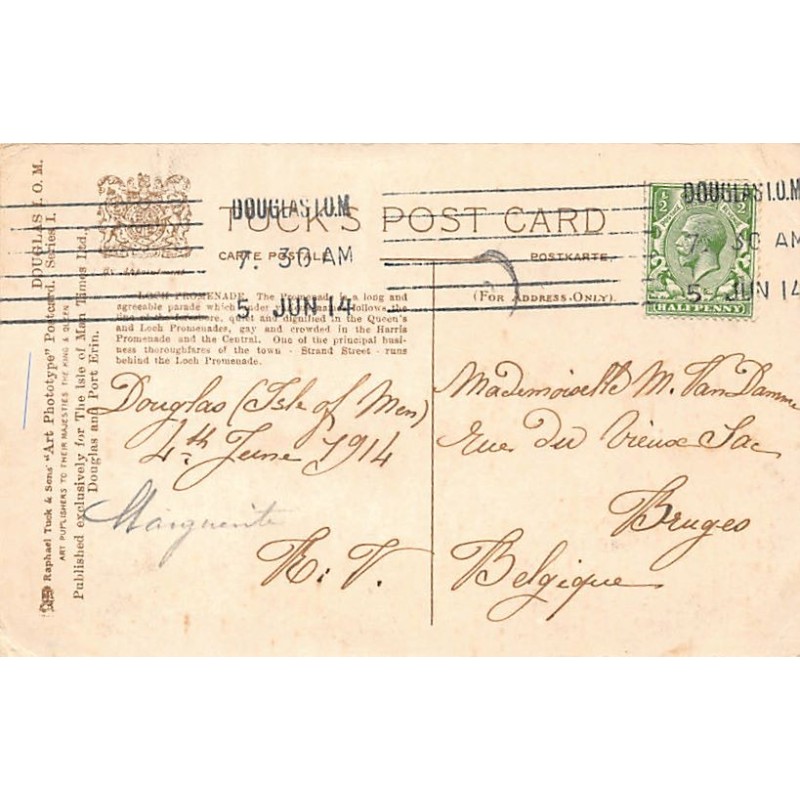 DOUGLAS I.O.M.
Raphael Tuck & Sons' "Art Phototype" Postcard. Series I.
ART PUBLISHERS TO THEIR MAJESTIES THE KING & QUEEN
Published exclusively for The Isle of Man Times Ltd.,
Douglas and Port Erin.
TUCK'S POST CARD
CARTE POSTALE
POSTKARTE
(FOR ADDRESS ONLY).
DOUGLAS I.O.M
7. 30 AM
5 JUN 14
DOUGLAS I.O.M
7. 30 AM
5 JUN 14
½ ½
HALFPENNY
LOCH PROMENADE. The Promenade is a long and
agreeable parade which under various names follows the
line of the foreshore, quiet and dignified in the Queen's
and Loch Promenades, gay and crowded in the Harris
Promenade and the Central. One of the principal busi-
ness thoroughfares of the town - Strand Street - runs
behind the Loch Promenade.
Douglas (Isle of Men)
4th June 1914
Marguerite
R. V.
Mademoiselle M. Van Damme
Rue du Vieux Sac
Bruges
Belgique